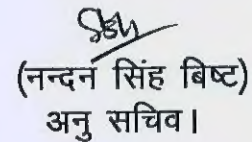 (नन्दन सिंह बिष्ट)
अनु सचिव।